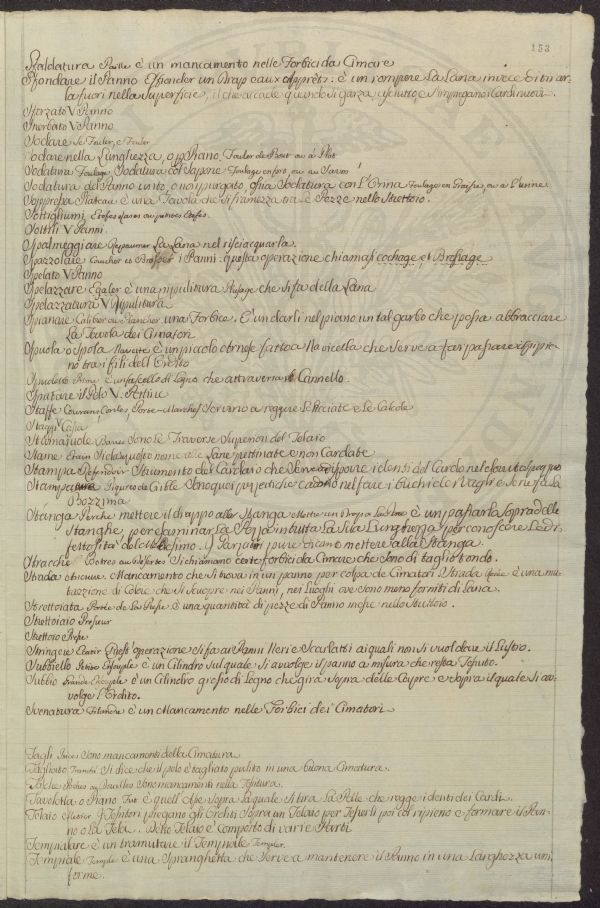 153
Sfaldatura è un mancamento nelle Forbici da Cimare
Sfondare il Panno Effonder un Drap aux apprêts: è un rompere La Lana invece di tirar
la fuori nella Superficie, il che accade quando si garza asciutto, e s'impiegano Cardi nuovi.
Sforzato V Panno
Snerbato V Panno
Sodare Fouler, e Fouler
Sodare nella Lunghezza, o Piano, Fouler de Bout ou à Plat
Sodatura Foulage, Sodatura col Sapone Foulage en fort, ou au Savon
Sodatura del Panno unto, o non purgato, ossia Sodatura con L'Orina Foulage en Graisse, ou à l'urine
Soppressa Plateau è una Tavola che si framezza tra le Pezze nello Strettoio.
Sottigliumi, Etofes rases ou petites Etofes.
Sottili V Panni
Spalmeggiare La Lana nel risciacquarla.
Spazzolare Coucher ou Brosser i Panni: questa operazione chiamasi cochage et Brossage
Spelato V Panno
Spelazzare Egaler è una ripulitura che si fa della Lana
Spelazzatura V Ripulitura
Spianare Calibrer una Forbice. È un darli nel piano un tal garbo che possa abbracciare
La Tavola dei Cimatori
Spuola o Spola Navette è un piccolo ordigno fatto a Navicella che Serve a far passare il ripie
no tra i fili dell'Ordito
Spoletto è un fuscello di Legno che attraversa il Cannello.
Spuntare il Pelo V. Pettine
Staffe Courans Cordes, Porte-Marches Servono a reggere le Licciate e Le Calcole
Staggi V Cassa
Stomaiuole Barres Sono le Traverse Superiori del Telaio
Stame Etaim Si dà questo nome alle Lane pettinate e non Cardate
Stampa Refendoir Strumento del Cardaio che Serve a disporre i denti del Cardo
Figures de Crible Sono quei pezzetti che cadono nel fare i buchi dei Vagli e Sene fa la
Bozzima
Stanga Perche mettere il drappo alla Stanga Mettre un Drap à La Perche è un passarlo Sopra delle
Stanghe, per esaminar La Pezza in tutta La Sua Lunghezza per conoscere Le di
fettosità del medesimo. I Parigini pure dicono mettere alla Stanga.
Stracche Si chiamano certe forbici da Cimare che sono di taglio tondo.
Strada Mancamento che si trova in un panno per colpa de Cimatori Strada è una mu
tazione di Colore che si scuopre nei Panni, nei Luoghi ove Sono meno forniti di Lana.
Strettoiata Portée de La Presse È una quantità di pezze di Panno messe nello Strettoio.
Strettoiaio Presseur
Strettoio Presse
Stringere Catir Quest'operazione si fa ai Panni Neri e Scarlatti ai quali non si vuol dare il Lustro.
Subbiello Petite Ensouple è un Cilindro sul quale si avvolge il panno a misura che resta Tessuto.
Subbio Grande Ensouple è un Cilindro grosso di Legno che gira Sopra delle Capre e Sopra il quale si av
volge L'Ordito.
Svenatura è un Mancamento nelle Forbici dei Cimatori
Tagli Sono mancamenti della Cimatura
Tagliato Tranché Si dice che il pelo è tagliato pulito in una buona Cimatura.
Sono mancamenti nella Tessitura.
Tavoletta o Piano è quell'Asse Sopra la quale Si tira La Pelle che regge i denti dei Cardi.
Telaio Metier I Tessitori piegano gli Orditi Sopra un Telaio per Tesserli poi col ripieno e formare il Pan
no o la Tela. Detto Telaio è Composto di varie Parti
Tempialare è un tramutare il Tempiale Templer.
Tempiale Temple è una Spranghetta che Serve a mantenere il Panno in una Larghezza uni
forme.